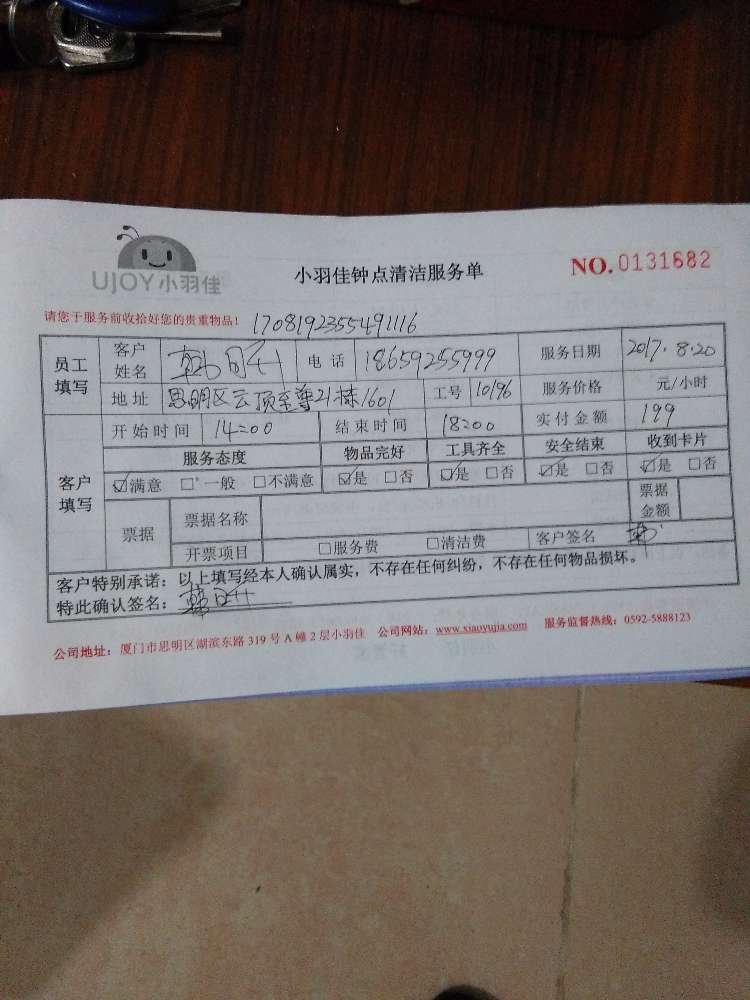 UJOY小羽佳
小羽佳钟点清洁服务单
NO.0131682
请您于服务前收拾好您的贵重物品! 1708192355491116
员工填写 客户姓名 韩 电话 18659255999 服务日期 2017.8.20
地址 思明区云顶至尊21栋1601 工号 10196 服务价格 元/小时
客户填写 开始时间 14:00 结束时间 18:00 实付金额 199
服务态度 物品完好 工具齐全 安全结束 收到卡片
☑满意 □一般 □不满意 ☑是 □否 ☑是 □否 ☑是 □否 ☑是 □否
票据 票据名称 票据金额
开票项目 □服务费 □清洁费 客户签名 韩
客户特别承诺:以上填写经本人确认属实,不存在任何纠纷,不存在任何物品损坏。
特此确认签名:韩
公司地址:厦门市思明区湖滨东路319号A幢2层小羽佳 公司网站:www.xiaoyujia.com 服务监督热线:0592-5888123